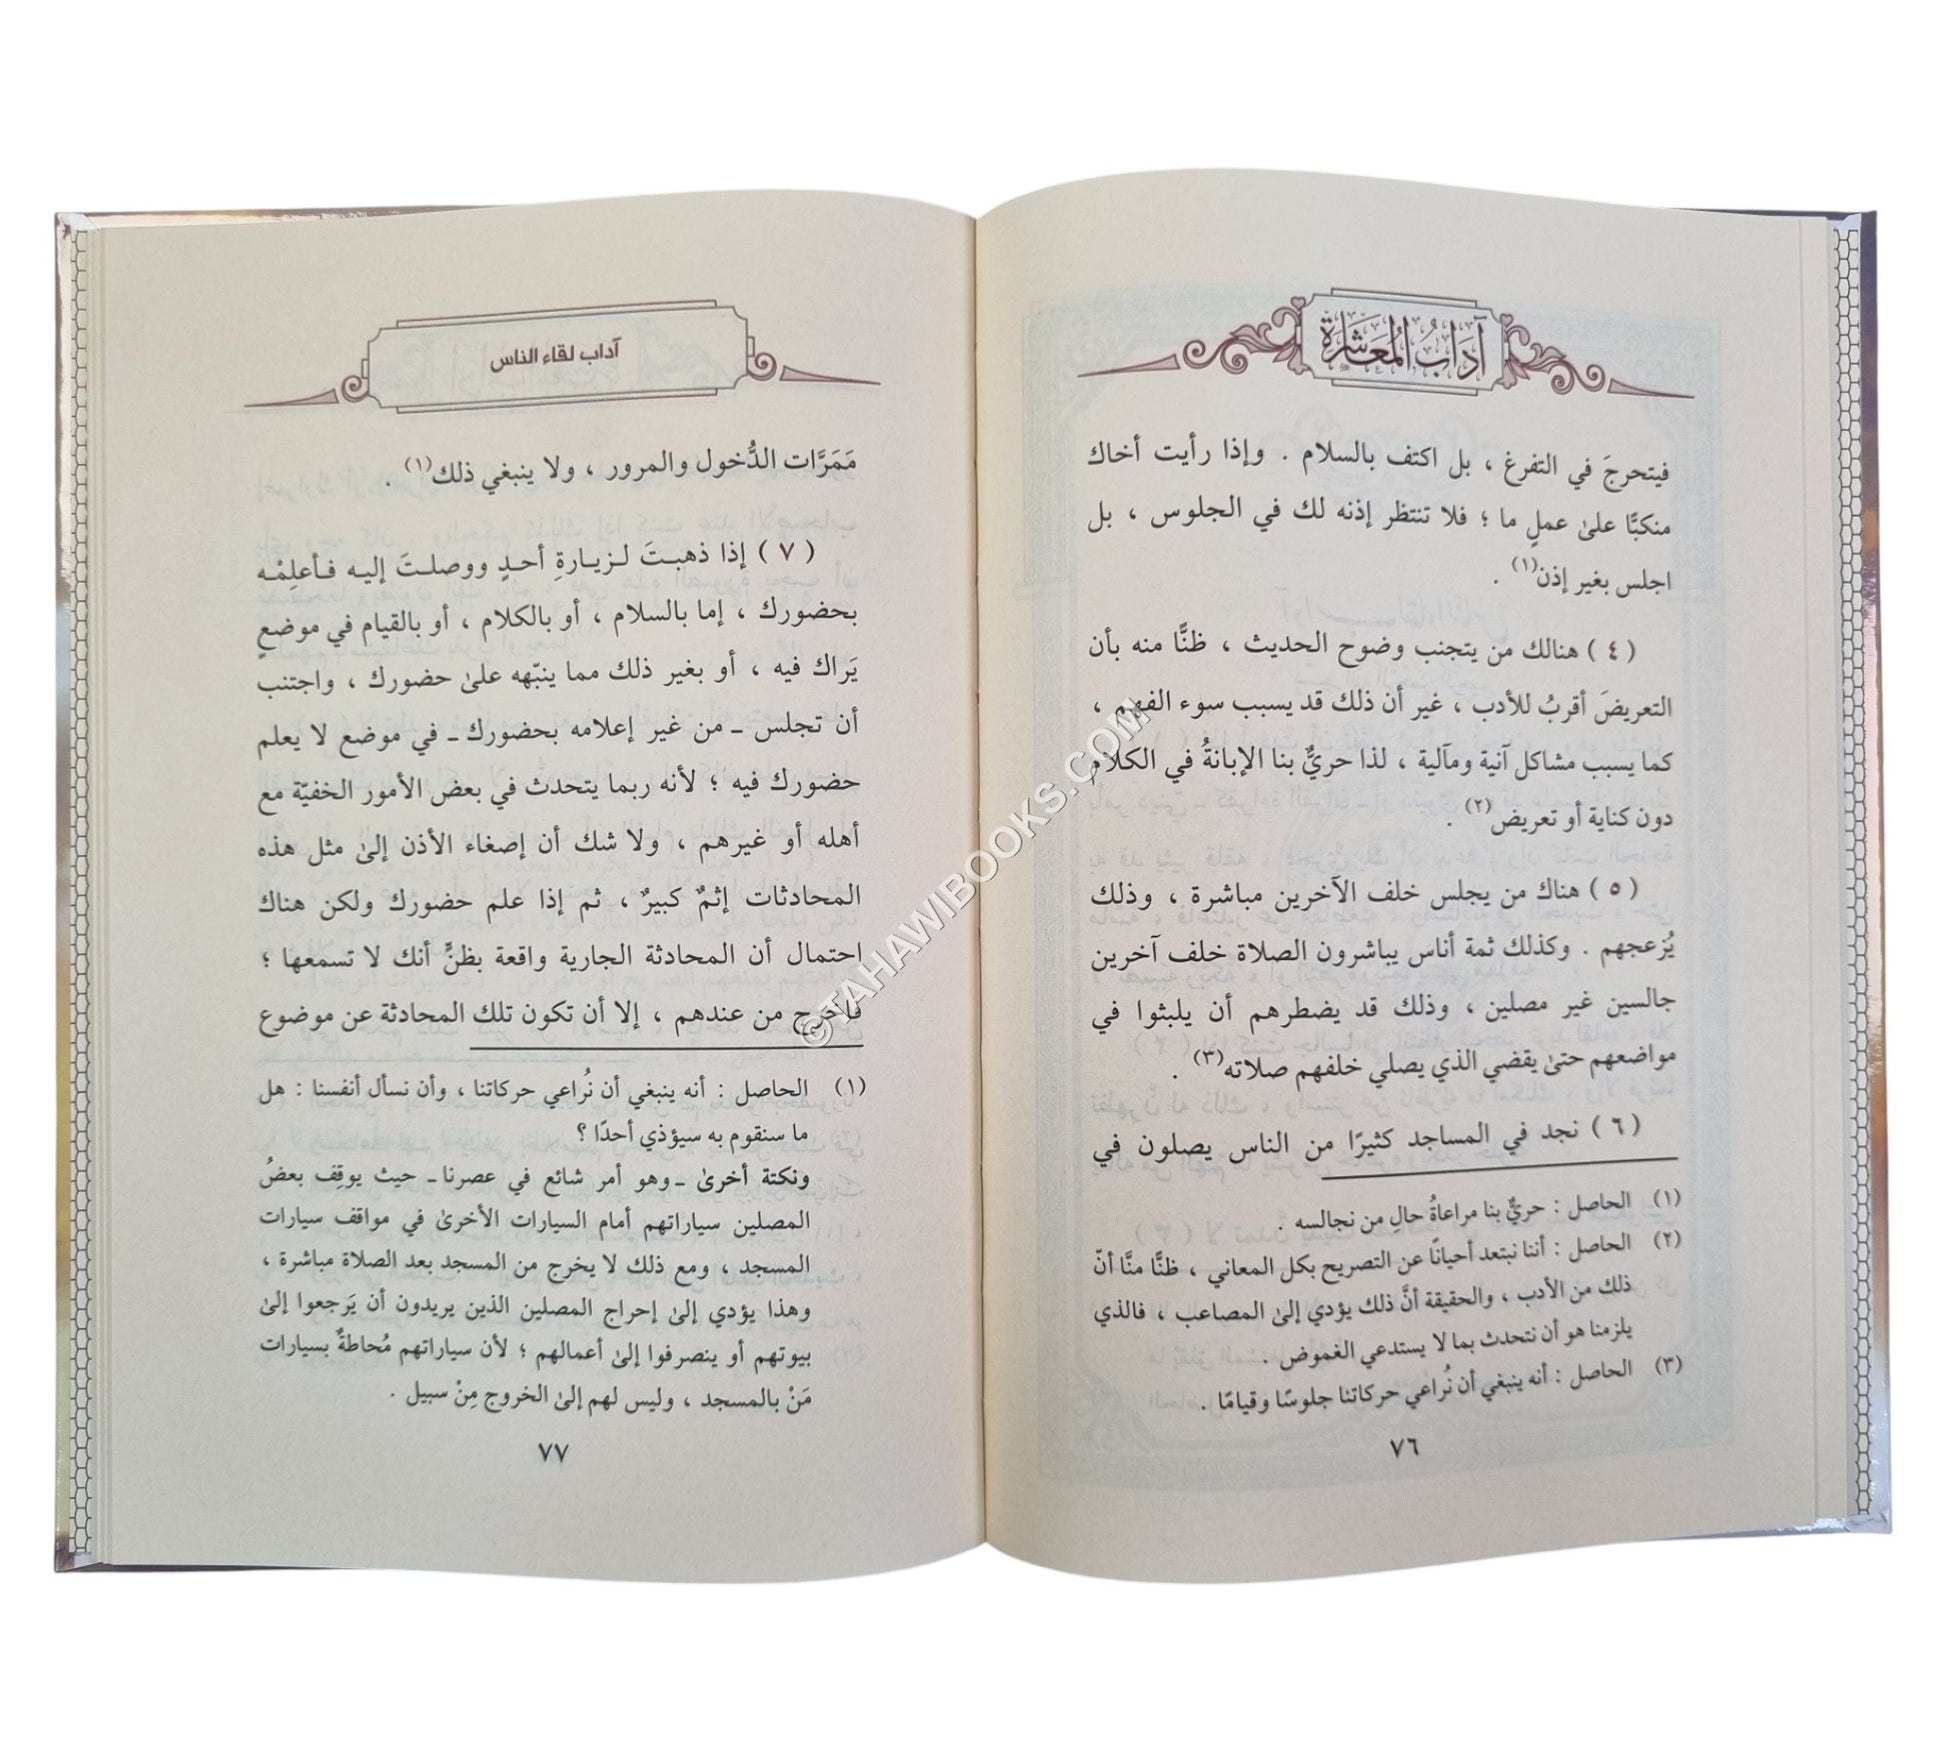 آدَابُ المُعَاشَرَة
فيتحرجَ في التفرغ ، بل اكتف بالسلام . وإذا رأيت أخاك
منكبًّا علىٰ عملٍ ما ؛ فلا تنتظر إذنه لك في الجلوس ، بل
اجلس بغير إذن(١) .
( ٤ ) هنالك من يتجنب وضوح الحديث ، ظنًّا منه بأن
التعريضَ أقربُ للأدب ، غير أن ذلك قد يسبب سوء الفهم ،
كما يسبب مشاكل آنية ومآلية ، لذا حريٌّ بنا الإبانةُ في الكلام
دون كناية أو تعريض(٢) .
( ٥ ) هناك من يجلس خلف الآخرين مباشرة ، وذلك
يُزعجهم . وكذلك ثمة أناس يباشرون الصلاة خلف آخرين
جالسين غير مصلين ، وذلك قد يضطرهم أن يلبثوا في
مواضعهم حتىٰ يقضي الذي يصلي خلفهم صلاته(٣) .
( ٦ ) نجد في المساجد كثيرًا من الناس يصلون في
(١) الحاصل : حريٌّ بنا مراعاةُ حالِ من نجالسه .
(٢) الحاصل : أننا نبتعد أحيانًا عن التصريح بكل المعاني ، ظنًّا منَّا أنّ
ذلك من الأدب ، والحقيقة أنَّ ذلك يؤدي إلىٰ المصاعب ، فالذي
يلزمنا هو أن نتحدث بما لا يستدعي الغموض .
(٣) الحاصل : أنه ينبغي أن نُراعي حركاتنا جلوسًا وقيامًا .
٧٦
آداب لقاء الناس
مَمَرَّات الدُّخول والمرور ، ولا ينبغي ذلك(١) .
( ٧ ) إذا ذهبـتَ لـزيـارةِ أحـدٍ ووصلـتَ إليـه فـأعلِمْـه
بحضورك ، إما بالسلام ، أو بالكلام ، أو بالقيام في موضعٍ
يَراك فيه ، أو بغير ذلك مما ينبّهه علىٰ حضورك ، واجتنب
أن تجلس ـ من غير إعلامه بحضورك ـ في موضع لا يعلم
حضورك فيه ؛ لأنه ربما يتحدث في بعض الأمور الخفيّة مع
أهله أو غيرهم ، ولا شك أن إصغاء الأذن إلىٰ مثل هذه
المحادثات إثمٌ كبيرٌ ، ثم إذا علم حضورك ولكن هناك
احتمال أن المحادثة الجارية واقعة بظنٍّ أنك لا تسمعها ؛
فاخرج من عندهم ، إلا أن تكون تلك المحادثة عن موضوع
(١) الحاصل : أنه ينبغي أن نُراعي حركاتنا ، وأن نسأل أنفسنا : هل
ما سنقوم به سيؤذي أحدًا ؟
ونكتة أخرىٰ ـ وهو أمر شائع في عصرنا ـ حيث يوقِف بعضُ
المصلين سياراتهم أمام السيارات الأخرىٰ في مواقف سيارات
المسجد ، ومع ذلك لا يخرج من المسجد بعد الصلاة مباشرة ،
وهذا يؤدي إلىٰ إحراج المصلين الذين يريدون أن يَرجعوا إلىٰ
بيوتهم أو ينصرفوا إلىٰ أعمالهم ؛ لأن سياراتهم مُحاطةٌ بسيارات
مَنْ بالمسجد ، وليس لهم إلىٰ الخروج مِنْ سبيل .
٧٧
©TAHAWIBOOKS.COM